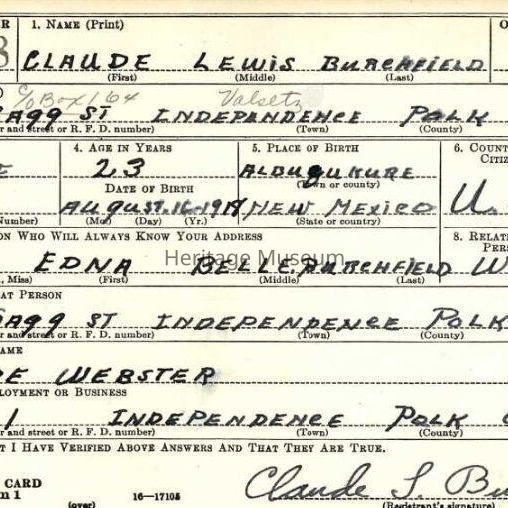 R 1. NAME (Print) O
CLAUDE LEWIS BURCHFIELD
(First) (Middle) (Last)
C/o Box 164 Valsetz
ST INDEPENDENCE POLK
r and street or R. F. D. number) (Town) (County)
4. AGE IN YEARS 5. PLACE OF BIRTH 6. COUNT
23 ALBUQUKURE CITIZ
(Town or county)
DATE OF BIRTH
AUGUST. 16-1917 NEW MEXICO U.
Number) (Mo.) (Day) (Yr.) (State or country)
ON WHO WILL ALWAYS KNOW YOUR ADDRESS 8. RELATI
PERS
EDNA BELLE BURCHFIELD W
, Miss) (First) (Middle) (Last)
Heritage Museum
AT PERSON
ST INDEPENDENCE POLK
r and street or R. F. D. number) (Town) (County)
AME
WEBSTER
LOYMENT OR BUSINESS
1 INDEPENDENCE POLK
r and street or R. F. D. number) (Town) (County)
T I HAVE VERIFIED ABOVE ANSWERS AND THAT THEY ARE TRUE.
CARD
m 1 16—17105 Claude L. Bu
(over) (Registrant's signature)